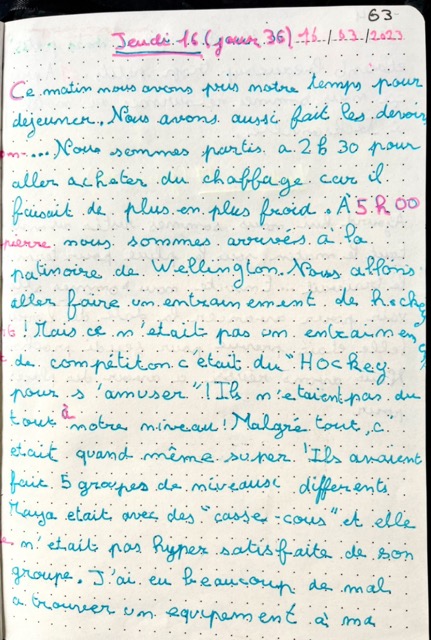 63
Jeudi 16 (jour 36) 16/03/2023
Ce matin nous avons pris notre temps pour
dejeuner. Nous avons aussi fait les devoirs
... Nous sommes partis a 2 h 30 pour
aller acheter du chaffage car il
faisait de plus en plus froid. À 5 h 00
pierre nous sommes arrivés à la
patinoire de Wellington. Nous allons
aller faire un entrainement de hockey
! Mais ce n'etait pas un entrainement
de compétiton c'était du "HOCKEY
pour s'amuser"! Ils n'etaient pas du
tout à notre niveau! Malgré tout, c'
etait quand même super! Ils avaient
fait 5 groupes de niveausc differents.
Maya etait avec des "casse-cous" et elle
n'était pas hyper satisfaite de son
groupe. J'ai eu beaucoup de mal
a trouver un equipement à ma